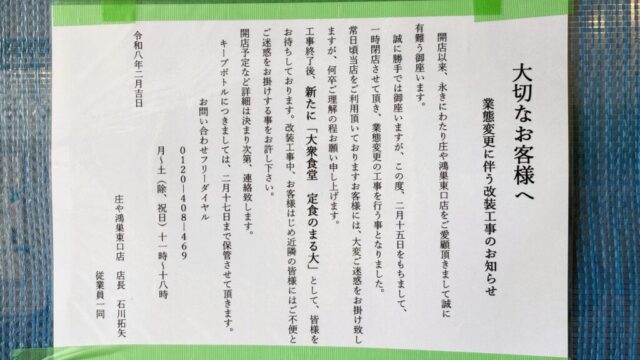 大切なお客様へ
業態変更に伴う改装工事のお知らせ
開店以来、永きにわたり庄や鴻巣東口店をご愛顧頂きまして誠に
有難う御座います。
誠に勝手では御座いますが、この度、二月十五日をもちまして、
一時閉店させて頂き、業態変更の工事を行う事となりました。
常日頃当店をご利用頂いておりますお客様には、大変ご迷惑をお掛け致し
ますが、何卒ご理解の程お願い申し上げます。
工事終了後、新たに「大衆食堂　定食のまる大」として、皆様を
お待ちしております。改装工事中、お客様はじめ近隣の皆様にはご不便と
ご迷惑をお掛けする事をお許し下さい。
開店予定など詳細は決まり次第、連絡致します。
キープボトルにつきましては、二月十七日まで保管させて頂きます。
お問い合わせフリーダイヤル
0120―408―469
月～土（除、祝日）十一時～十八時
庄や鴻巣東口店　店長　石川拓矢
従業員一同
令和八年二月吉日